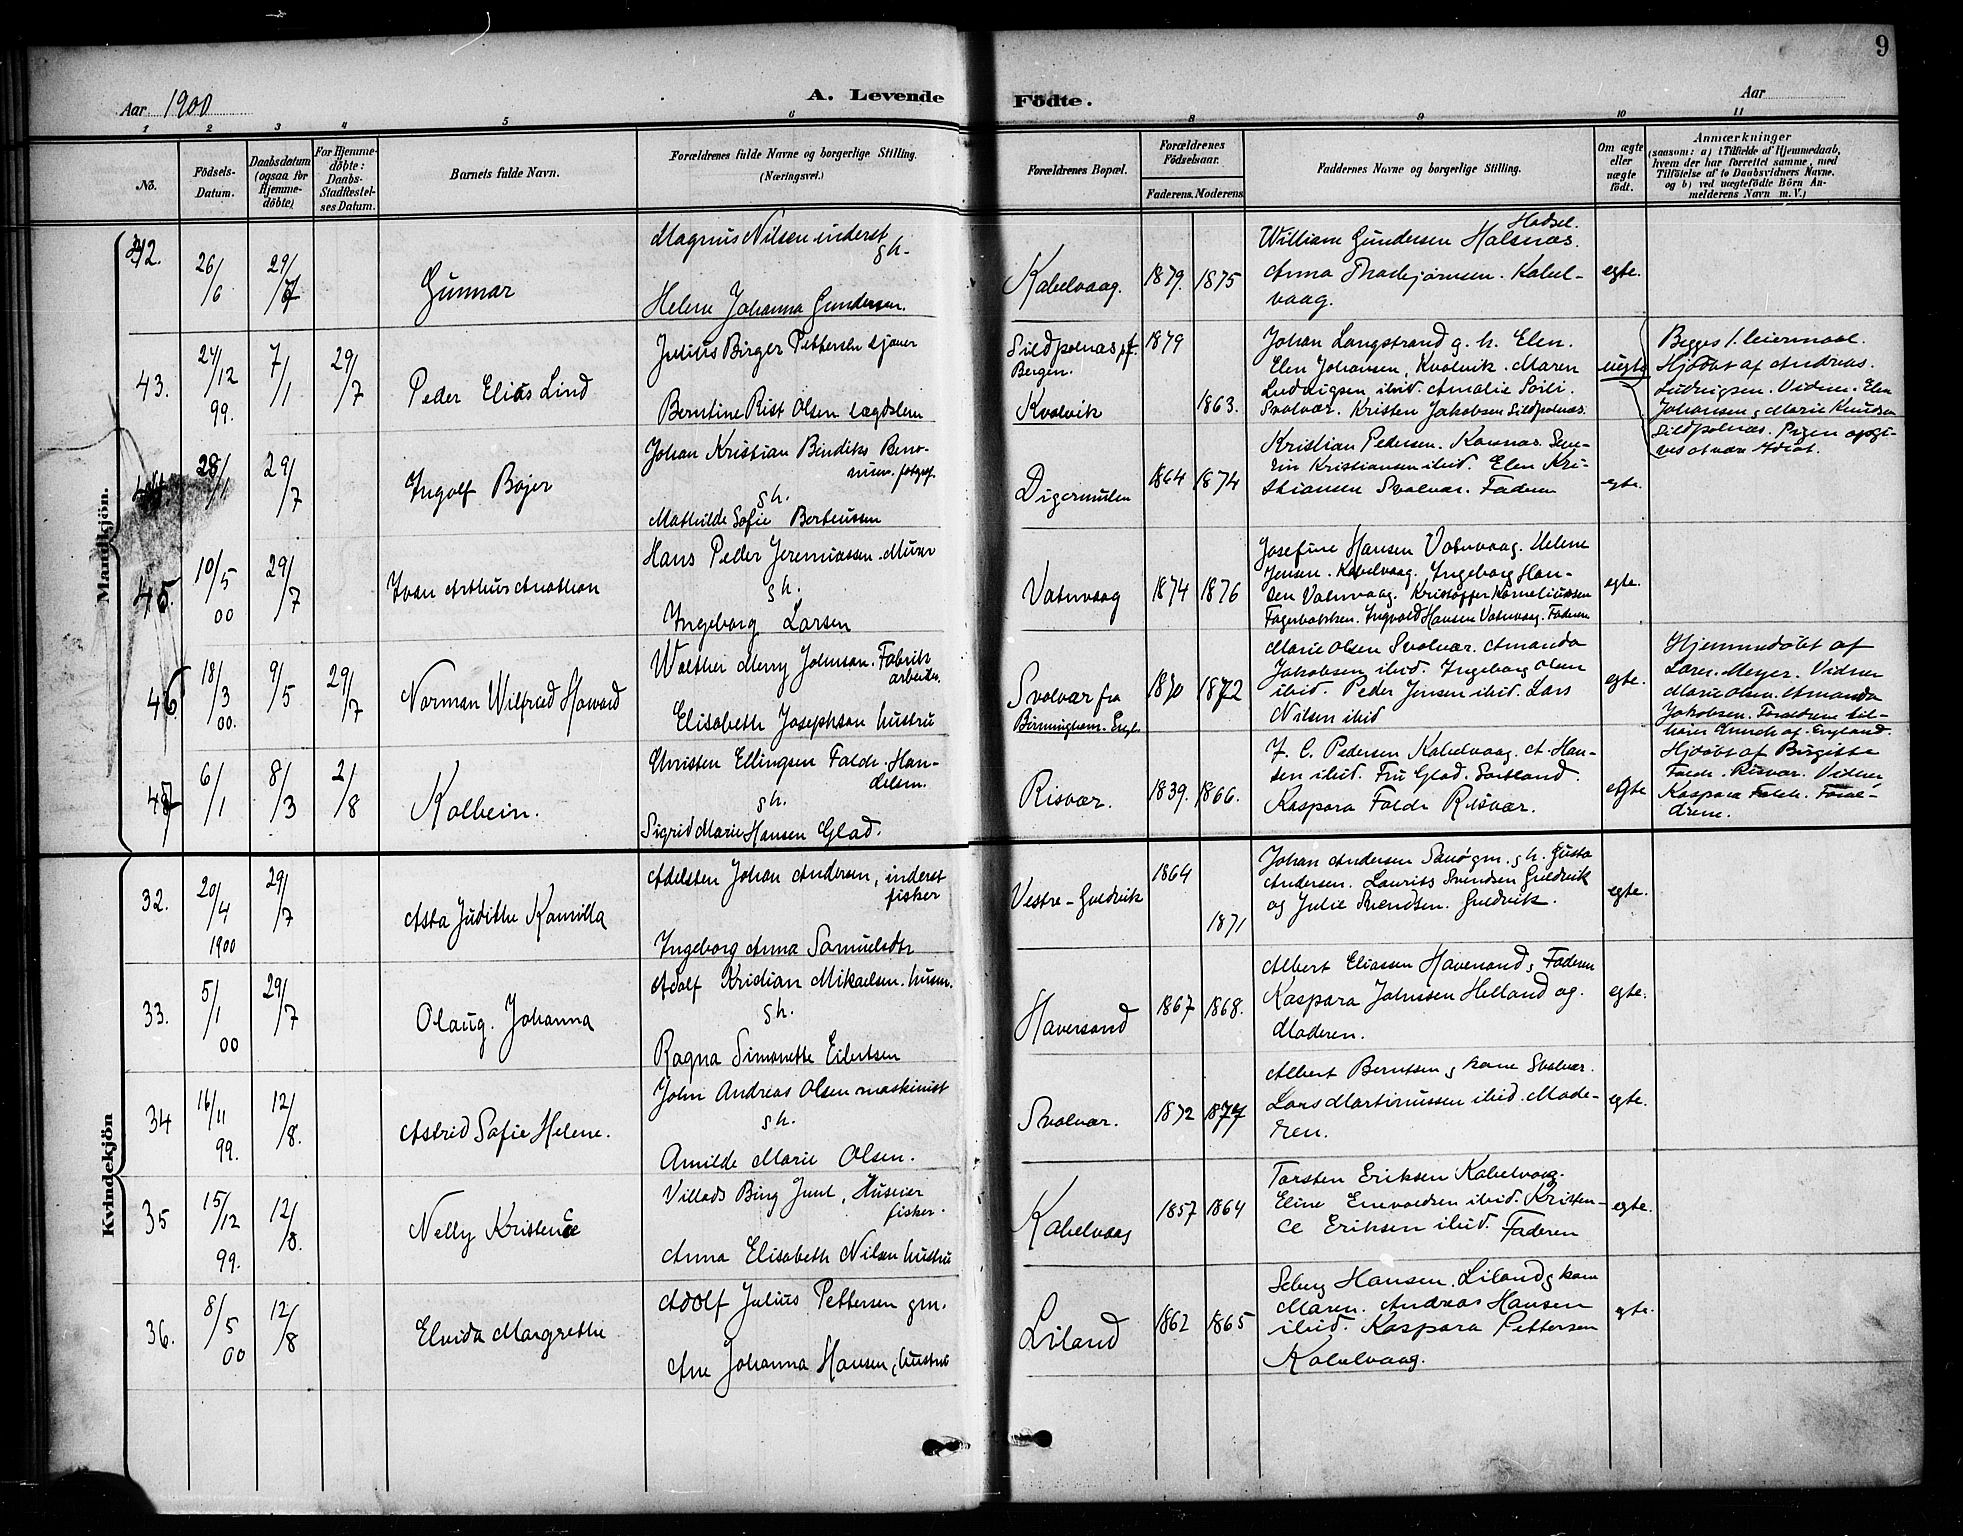 9
Aar 1900
A. Levende Födte.
Aar
1 2 3 4 5 6 8 9 10 11
No.
Födsels-
Datum.
Daabsdatum
(ogsaa for
Hjemme-
döbte)
For Hjemme-
döbte:
Daabs-
Stadfestel-
ses Datum.
Barnets fulde Navn.
Forældrenes fulde Navne og borgerlige Stilling.
(Næringsvei.)
Forældrenes Bopæl.
Forældrenes
Födselsaar.
Faderens. Moderens.
Faddernes Navne og borgerlige Stilling.
Om ægte
eller
uægte
födt.
Anmærkninger
(saasom: a) i Tilfælde af Hjemmedaab,
hvem der har forrettet samme, med
Tilföielse af to Daabsvidners Navne.
og b) ved uægtefödte Börn An-
melderens Navn m.V.)
Mandkjön.
42.
26/6
29/7
Gunnar
Magnus Nilsen inderst
g h.
Helene Johanna Gundersen.
Kabelvaag.
1879. 1875
Hadsel.
William Gundersen Halsnæs.
Anna Thorbjørnsen. Kabel-
vaag.
egte.
43.
27/12
99.
7/1
29/7
Peder Elias Lind
Julius Birger Pettersen
Berntine Rist Olsen lægdslem
Sildpolnæs pf.
Bergen.
Kvolvik
1879
1863.
Johan Langstrand g. h. Elen.
Elen Johansen, Kvolvik. Maren
Ludvigsen, ibid. Amalie
Svolvær. Kristen Jakobsen Sildpolnæs.
uegte
Begges 1. leiermaal.
Hjdøbt af Andreas
Ludvigsen. Vidner. Elen
Johansen, Marie Knudsen
Sildpolnæs. Pigen opgi-
ves at være Idiot.
44
28/1
29/7
Ingolf Bojer
Johan Kristian Bendiks Beno-
nisen. fotograf.
g h.
Mathilde Sofie Berteussen
Digermulen
1864 1874
Kristian Pedersen. Korsnæs. Sen-
rin Kristiansen ibid. Elen Kri-
stiansen Svolvær. Faderen
egte.
45.
10/5
00
29/7
Ivan Arthur Anathon
Hans Peder Jeremiassen. Murer
g h.
Ingeborg Larsen
Vatnvaag
1874 1876
Josefine Hansen Vatnvaag. Helene
Jensen. Kabelvaag. Ingeborg Han-
sen Vatnvaag. Kristoffer Korneliussen
Fagerbakken. Ingvald Hansen Vatnvaag. Faderen
egte.
46
18/3
00.
9/5
29/7
Norman Wilfred Howard
Walther Merry Johnson. Fabrik
arbeider.
Elisabeth Josephson hustru
Svolvær fra
Birmingham. Engl.
1870 1872
Marie Olsen Svolvær. Amanda
Jakobsen ibid. Ingeborg Olsen
ibid. Peder Jensen ibid. Lars
Nilsen ibid
egte.
Hjemmedøbt af
Lars. Meyer. Vidner
Marie Olsen. Amanda
Jakobsen. Forældrene til-
hører Church of. England.
47
6/1
8/3
2/8
Kolbein.
Christen Ellingsen Falch. Han-
delsm.
g h.
Sigrid Marie Hansen Glad.
Risvær.
1839. 1866.
J. C. Pedersen Kabelvaag. A. Han-
sen ibid. Fru Glad. Sortland.
Kaspara Falch Risvær.
egte
Hjdøbt af Birgitte
Falch. Risvær. Vidner,
Kaspara Falch. Foræl-
drene.
Kvindekjön
32.
20/4
1900
29/7
Asta Judithe Kamilla
Adelsten Johan Andersen, inderst
fisker
Ingeborg Anna Samuelsdtr
Vestre-Guldvik
1864
1871
Johan Andersen Sanø gm. g h. Gusta
Andersen. Laurits Svendsen Guldvik
og Julie Svendsen. Guldvik.
egte.
33.
5/1
00
29/7
Olaug. Johanna
Adolf Kristian Mikaelsen. husm.
g h.
Ragna Simonette Eilertsen
Haversand
1867 1868.
Albert Eliassen Haversand, Faderen
Kaspara Johnsen Helland og.
Moderen.
egte.
34
16/11
99.
12/8.
Astrid Sofie Helene.
John Andreas Olsen maskinist
g h.
Amilde Marie Olsen.
Svolvær.
1872 1877
Albert Berntsen g kone Svolvær.
Lars Martinussen ibid. Mode-
ren.
egte.
35
15/12
99.
12/8.
Nelly Kristence
Villads Bing Juul, Huseier
fisker.
Anna Elisabeth Nilsen hustru
Kabelvaag
1857 1864
Torsten Eriksen Kabelvaag.
Eline Enevoldsen ibid. Kristen-
ce Eriksen ibid. Faderen
egte.
36.
8/5
00
12/8
Elvida Margrethe
Adolf Julius Pettersen gm.
Ane Johanna Hansen, hustru
Liland
1862 1865
Seberg Hansen. Liland g kone
Maren. Andreas Hansen
ibid. Kaspara Pettersen
Kabelvaag.
egte.